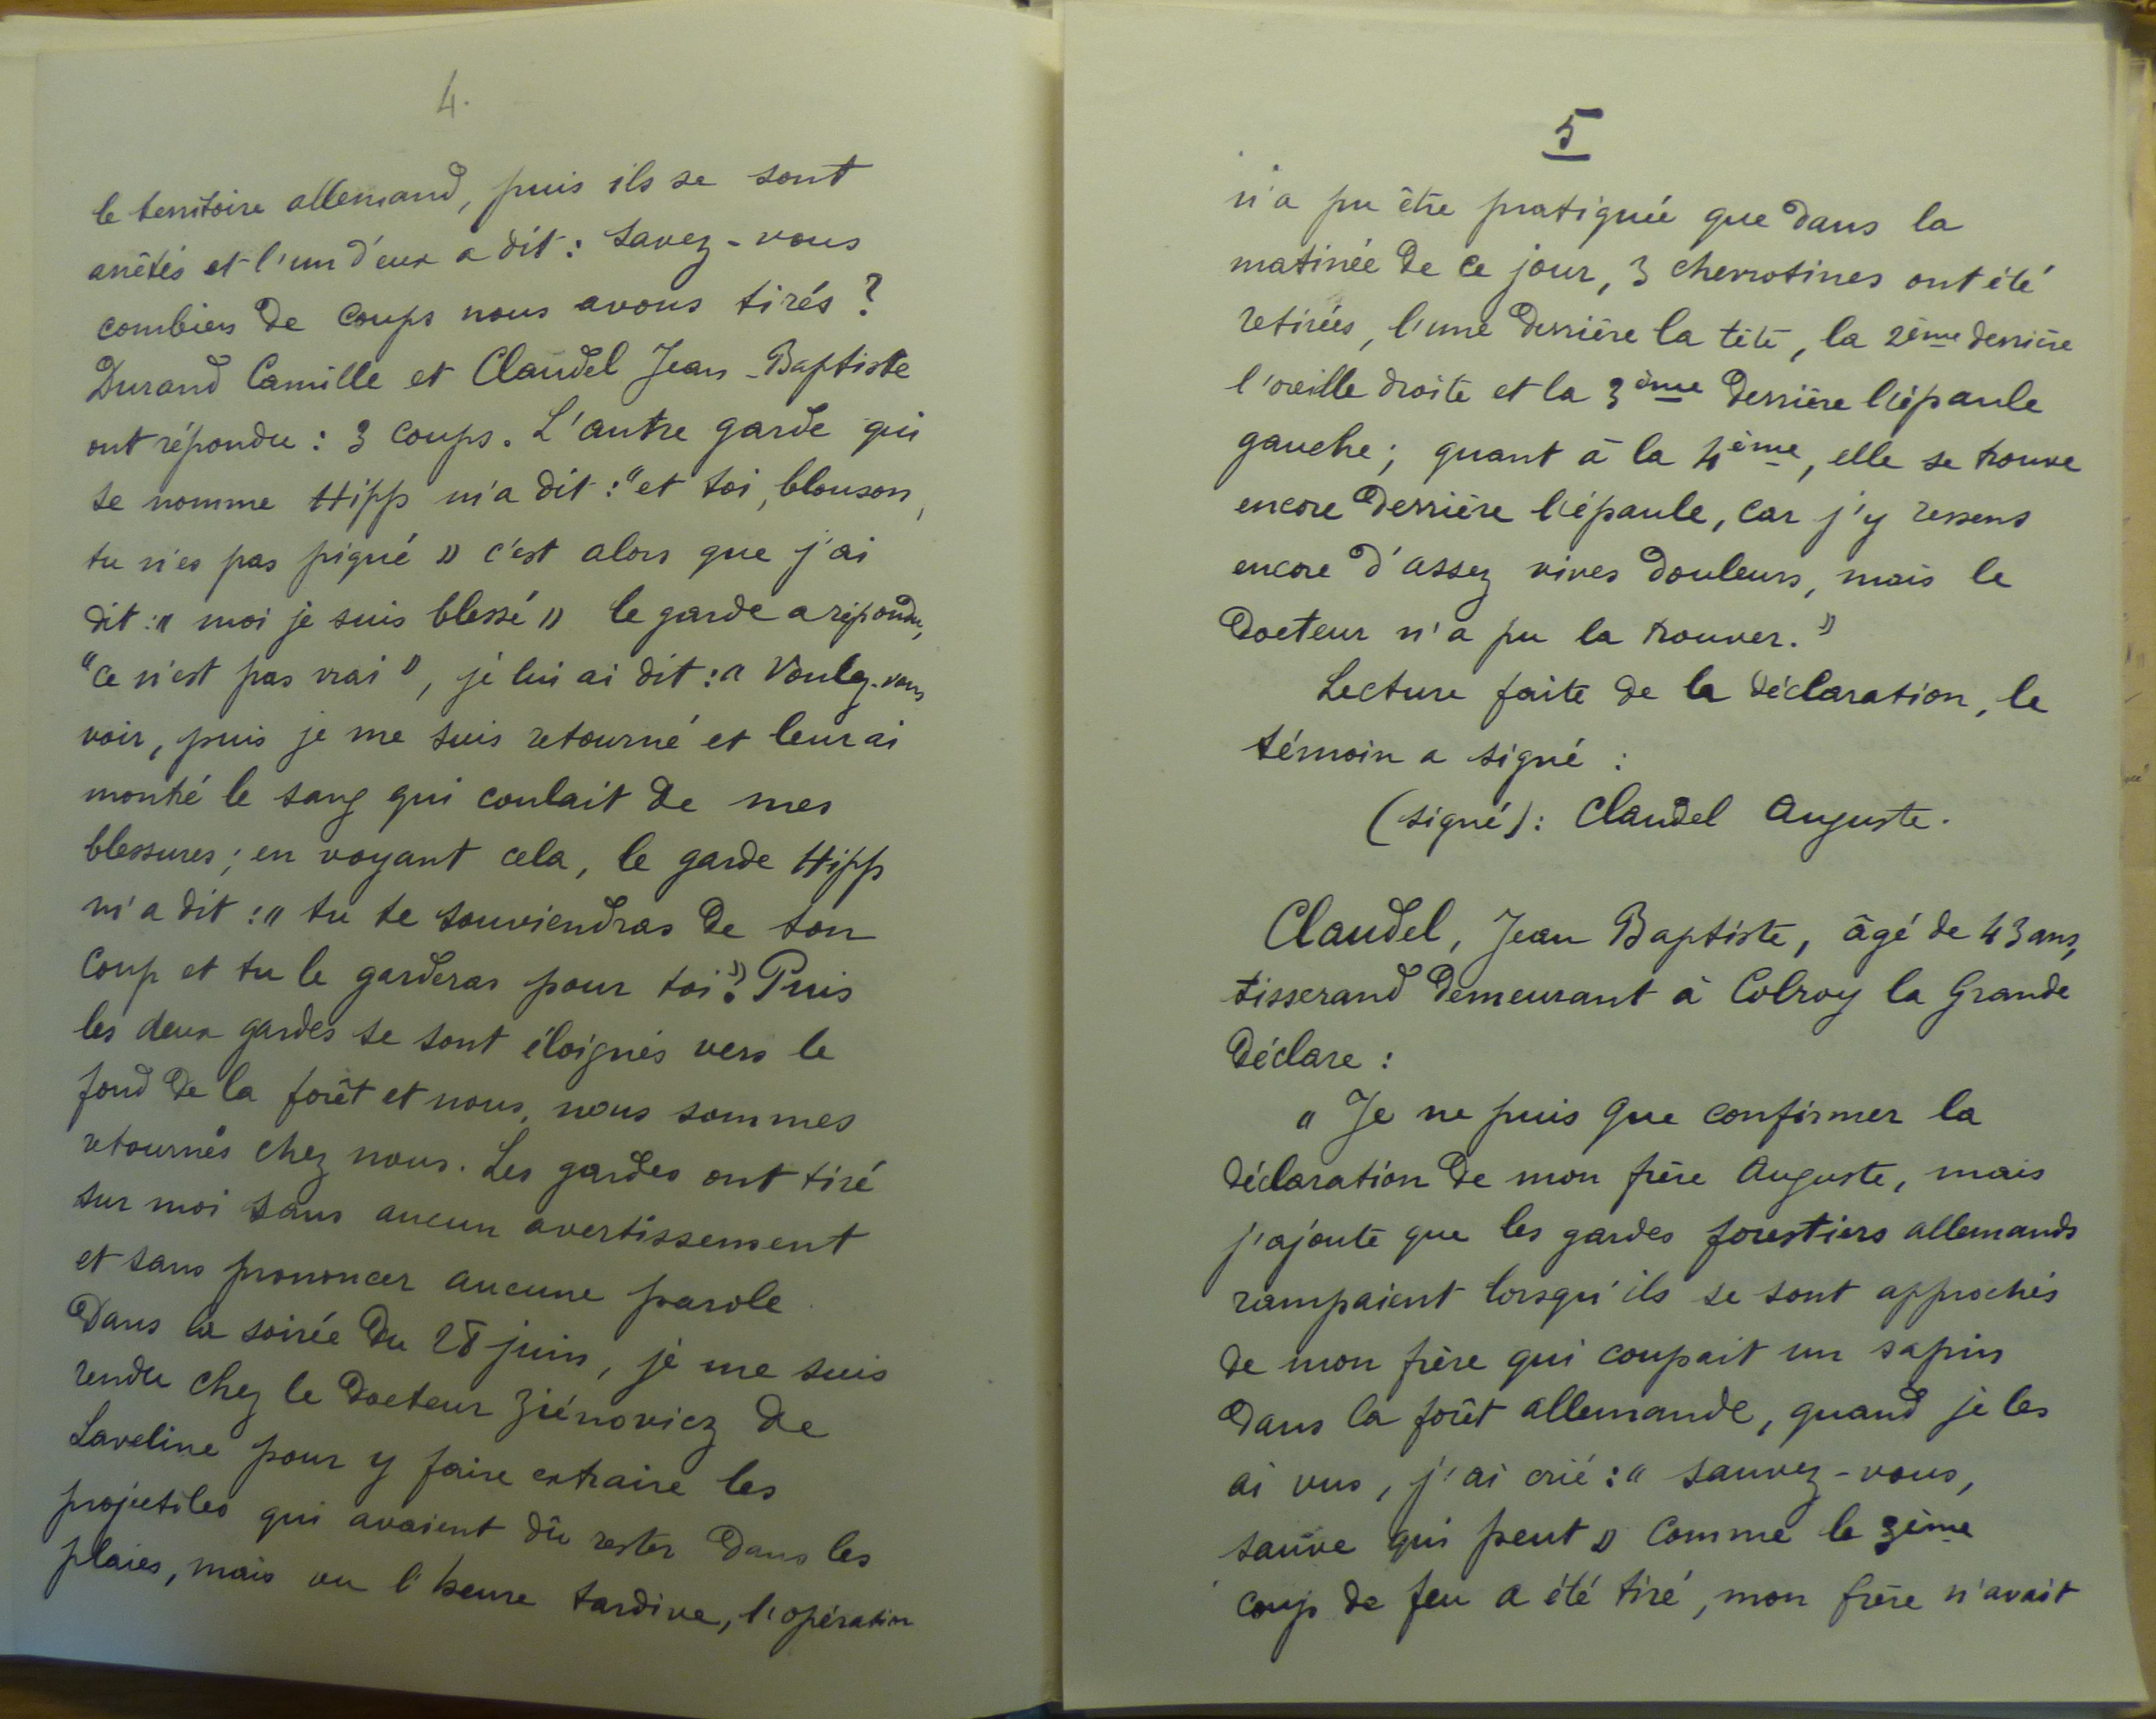 4.
le territoire allemand, puis ils se sont
arrêtés et l'un d'eux a dit : Savez-vous
combien de coups nous avons tirés ?
Durand Camille et Claudel Jean-Baptiste
ont répondu : 3 coups. L'autre garde qui
se nomme Hipp m'a dit : "et toi, blouson,
tu n'es pas piqué » c'est alors que j'ai
dit : « moi je suis blessé » le garde a répondu,
"ce n'est pas vrai », je lui ai dit : « Voulez-vous
voir, puis je me suis retourné et leur ai
montré le sang qui coulait de mes
blessures ; en voyant cela, le garde Hipp
m'a dit : « tu te souviendras de ton
coup et tu le garderas pour toi ». Puis
les deux gardes se sont éloignés vers le
fond de la forêt et nous, nous sommes
retournés chez nous. Les gardes ont tiré
sur moi sans aucun avertissement
et sans prononcer aucune parole.
Dans la soirée du 28 juin, je me suis
rendu chez le Docteur Ziénovicz de
Laveline pour y faire extraire les
projectiles qui avaient dû rester dans les
plaies, mais vu l'heure tardive, l'opération
5
n'a pu être pratiquée que dans la
matinée de ce jour, 3 chevrotines ont été
retirées, l'une derrière la tête, la 2ème derrière
l'oreille droite et la 3ème derrière l'épaule
gauche ; quant à la 4ème, elle se trouve
encore derrière l'épaule, car j'y ressens
encore d'assez vives douleurs, mais le
Docteur n'a pu la trouver. »
Lecture faite de la déclaration, le
témoin a signé :
(signé) : Claudel Auguste.
Claudel, Jean Baptiste, âgé de 43 ans,
tisserand demeurant à Colroy la Grande
déclare :
« Je ne puis que confirmer la
déclaration de mon frère Auguste, mais
j'ajoute que les gardes forestiers allemands
rampaient lorsqu'ils se sont approchés
de mon frère qui coupait un sapin
dans la forêt allemande, quand je les
ai vus, j'ai crié : « sauvez-vous,
sauve qui peut » comme le 3ème
coup de feu a été tiré, mon frère n'avait